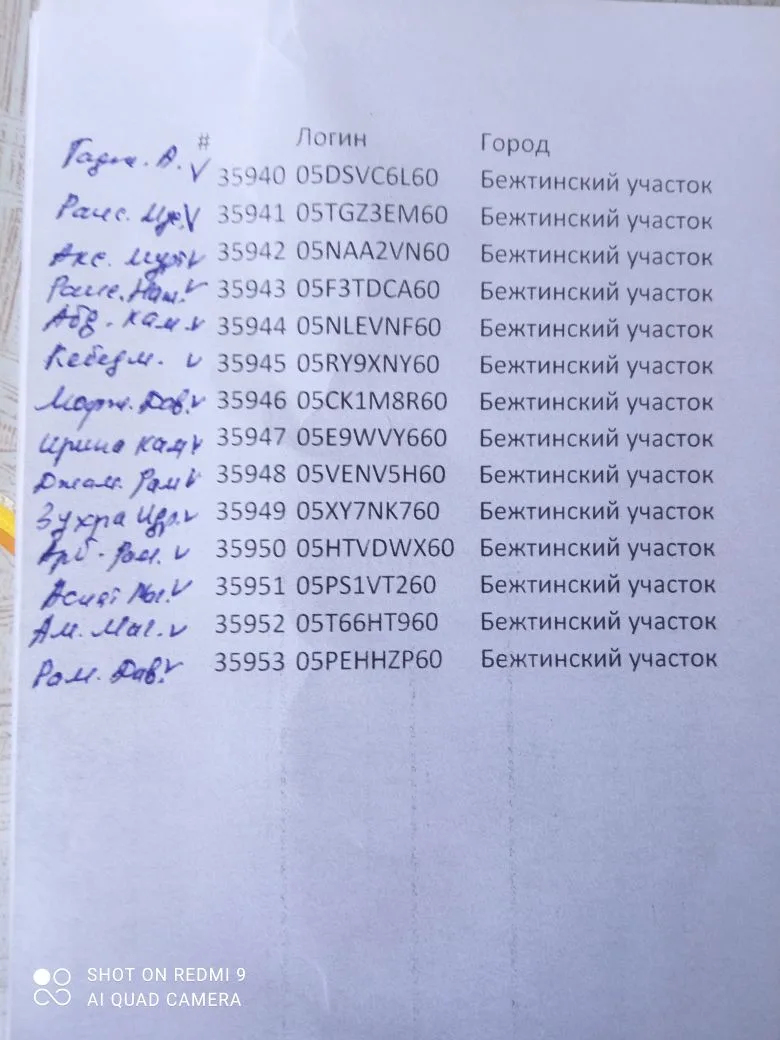 # Логин Город
Гадж. А. 35940 05DSVC6L60 Бежтинский участок
35941 05TGZ3EM60 Бежтинский участок
35942 05NAA2VN60 Бежтинский участок
35943 05F3TDCA60 Бежтинский участок
Абд. Кам. 35944 05NLEVNF60 Бежтинский участок
Кебедм. 35945 05RY9XNY60 Бежтинский участок
Дав. 35946 05CK1M8R60 Бежтинский участок
Ирина Кам 35947 05E9WVY660 Бежтинский участок
Джам. Рам 35948 05VENV5H60 Бежтинский участок
Зухра 35949 05XY7NK760 Бежтинский участок
35950 05HTVDWX60 Бежтинский участок
Асият 35951 05PS1VT260 Бежтинский участок
Ам. Маг. 35952 05T66HT960 Бежтинский участок
Рам. Дав. 35953 05PEHHZP60 Бежтинский участок
SHOT ON REDMI 9
AI QUAD CAMERA